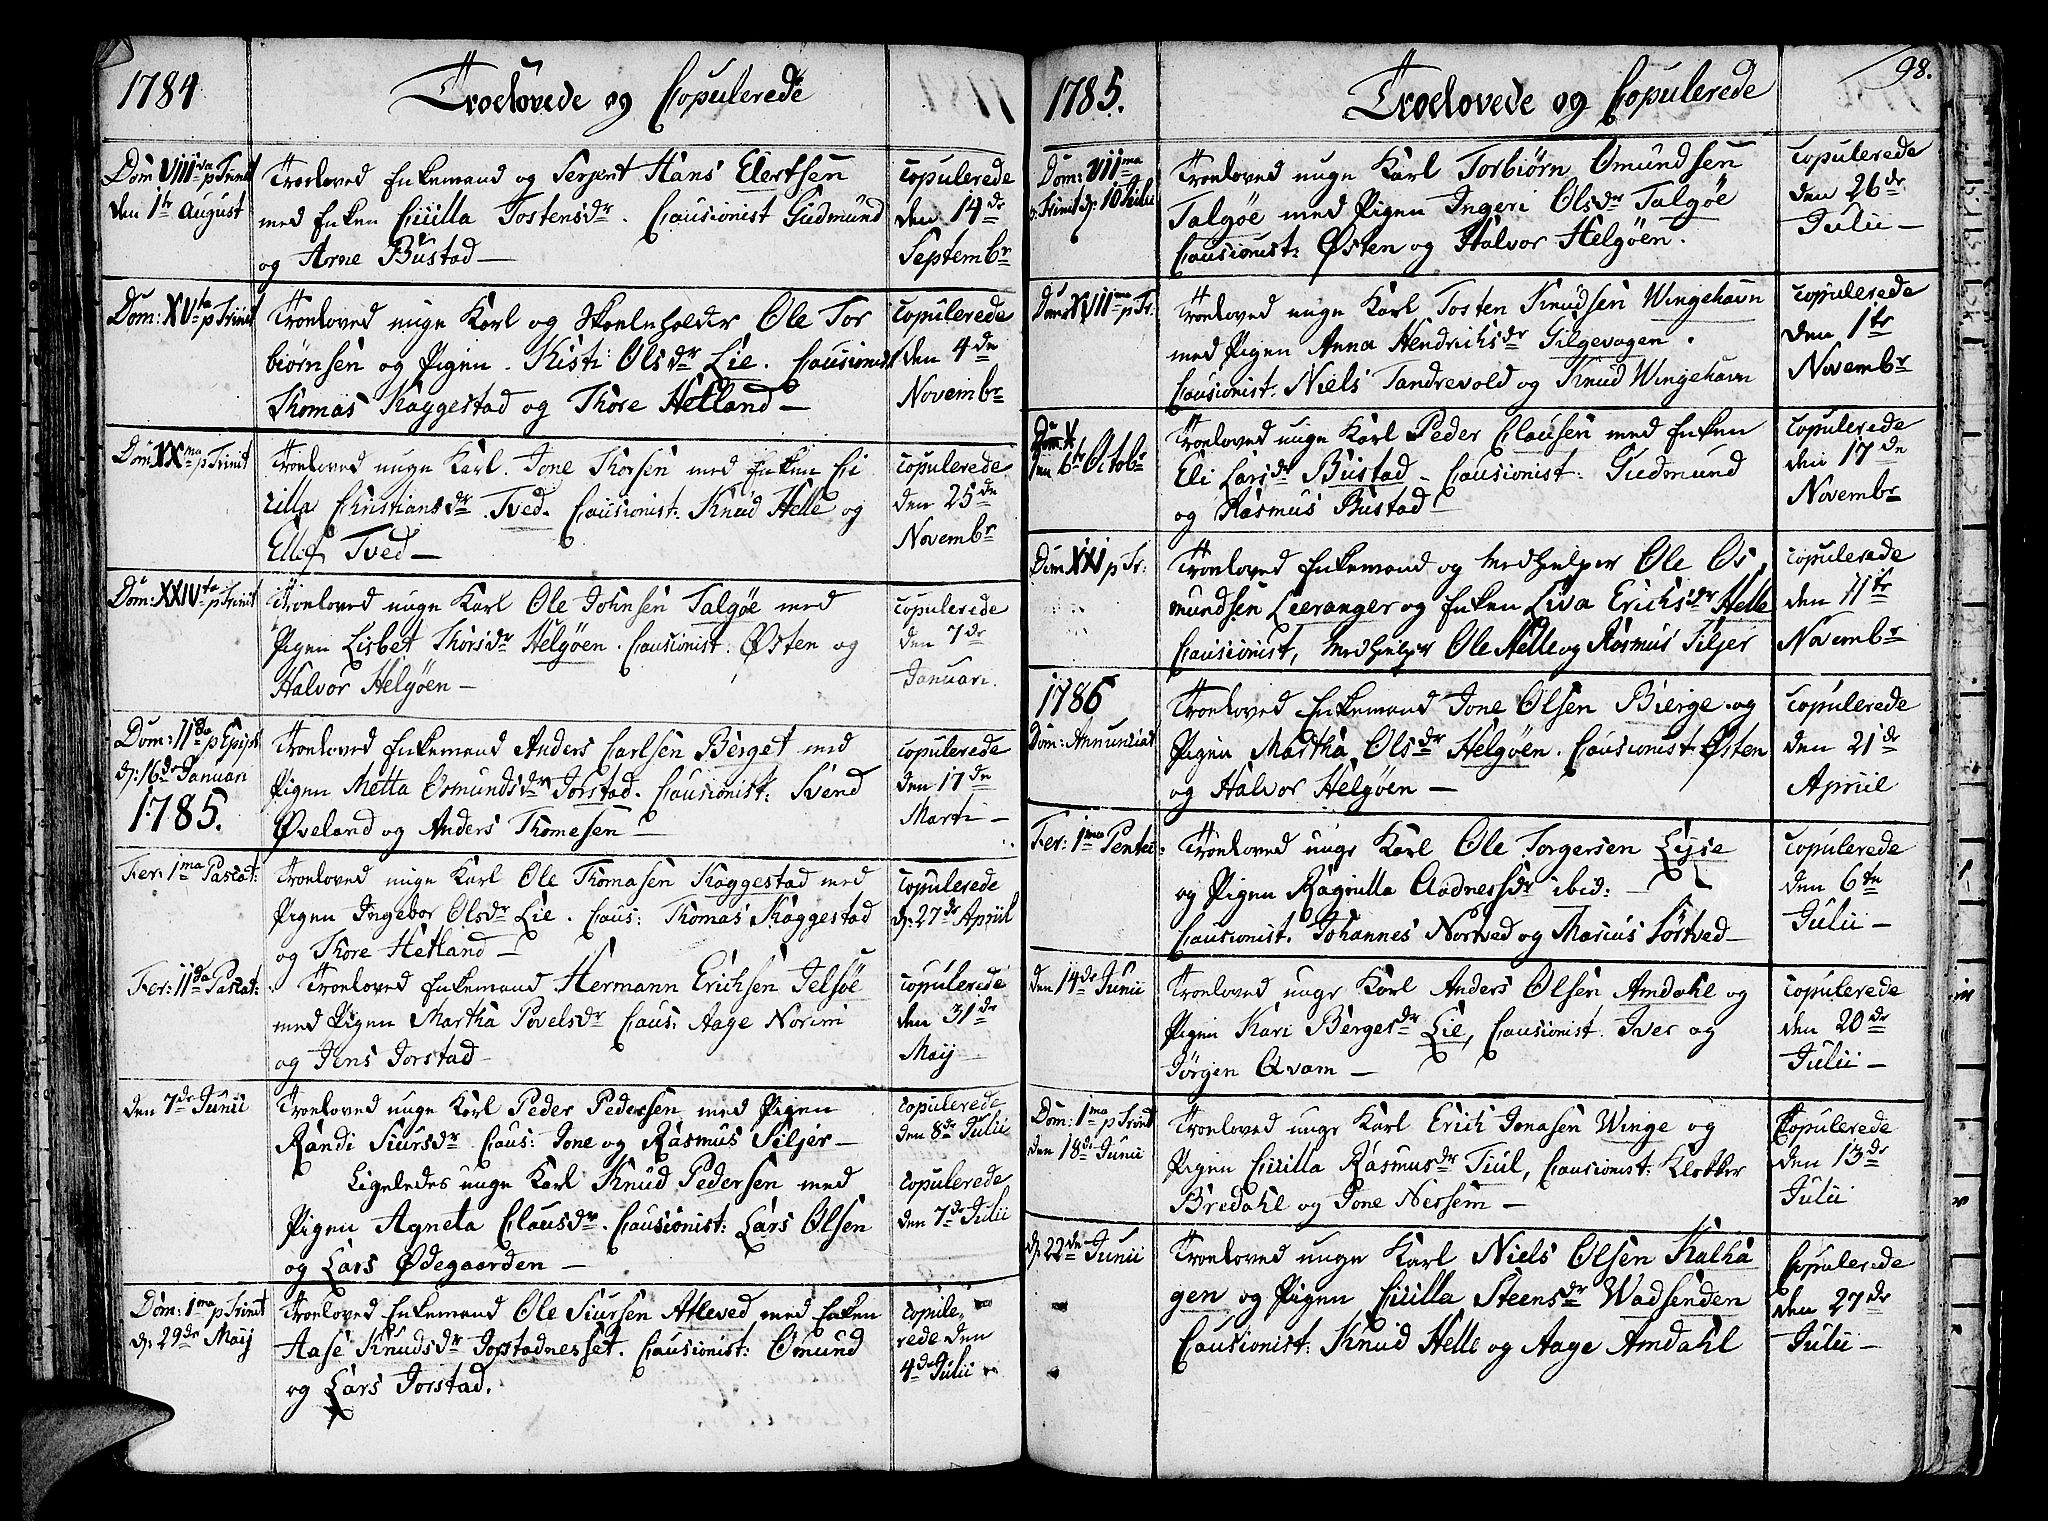 1784
Troelovede og Copulerede
Dom VIII va p Trinit
den 1te August
Troeloved Enkemand og Serjent Hans Elertsen
med Enken Cicilla Tostensdr. Causionist Gudmund
og Arne Bustad —
copulerede
den 14de
Septembr
Dom: XV ta p Trinit
Troeloved unge Karl og Skoeleholder Ole Tor
biørnsen og Pigen Kisti Olsdr Lie. Causionist
Thomas Kaggestad og Thore Hetland —
copulerede
den 4de
Novembr
Dom XX ma p Trinit
Troeloved unge Karl. Jone Thorsen med Enken Ci
cilla Christiansdr Tved. Causionist: Knud Helle og
Ellef Tved —
copulerede
den 25de
Novembr
Dom: XXIV ta p Trinit
Troeloved unge Karl Ole Johnsen Talgøe med
Pigen Lisbet Thorsdr Helgøen. Causionist: Østen og
Halvor Helgøen —
copulerede
den 7de
Januari.
Dom: II da p Epiph
d: 16de Januari
1785.
Troeloved Enkemand Anders Carlsen Berget med
Pigen Metta Osmundsdr Jorstad. Causionist: Svend
Øveland og Anders Thomesen —
copulerede
den 17de
Marti —
Fer: 1ma Pascat:
Troeloved unge Karl Ole Thomasen Kaggestad med
Pigen Ingebor Olsdr Lie. Caus: Thomas Kaggestad
og Thore Hetland —
copulerede
d: 27de Apriil
Fer: II da Pascat:
Troeloved Enkemand Hermann Erichsen Jelsøe
med Pigen Martha Povelsdr Caus: Aage Norim
og Jens Jorstad —
copulerede
den 31de
Maij —
den 7de Junii
Troeloved unge Karl Peder Pedersen med Pigen
Randi Siursdr Caus: Jone og Rasmus Siljer —
copulerede
den 8de Julii
Ligeledes unge Karl Knud Pedersen med
Pigen Agneta Clausdr. Causionist: Lars Olsen
og Lars Ødegaarden —
copulerede
den 7de Julii
Dom: 1ma p Trinit
d: 29de Maij
Troeloved Enkemand Ole Siursen Atleved med Enken
Aase Knudsdr Jorstadnesset. Causionist: Omund
og Lars Jorstad.
copule-
rede den
4de Julii
98.
1785.
Troelovede og Copulerede
Dom: VII ma
p: Trinit d: 10 Julii
Troeloved unge Karl Torbiørn Omundsen
Talgøe med Pigen Ingeri Olsdr Talgøe
Causionist: Østen og Halvor Helgøen.
copulerede
den 26de
Julii —
Dom XVIII ma p Tr.
Troeloved unge Karl Tosten Knudsen Wingehavn
med Pigen Anna Hendrichsdr Gilgevagen.
Causionist. Niels Tandrevold og Knud Wingehavn
copulerede
den 1te
Novembr
den 6te Octobr
Troeloved unge Karl Peder Clausen med Enken
Eli Larsdr Bustad — Causionist: Gudmund
og Rasmus Bustad
copulerede
den 17de
Novembr
Dom XXI p Tr:
Troeloved Enkemand og Medhjelper Ole Os
mundsen Leeranger og Enken Liva Erichsdr Helle
Causionist, Medhjelper Ole Helle og Rasmus Siljer
copulerede
den 11te
Novembr
1786
Dom: Annunciat
Troeloved Enkemand Jone Olsen Bierge og
Pigen Martha Olsdr Helgøen. Causionist Østen
og Halvor Helgøen —
copulerede
den 21de
Apriil
Fer: 1ma Pentec:
Troeloved unge Karl Ole Torgersen Lyse
og Pigen Ragnilla Aadnessdr ibid: —
Causionist. Johannes Nortved og Marius Sørtved —
copulerede
den 6te
Julii —
den 14de Junii
Troeloved unge Karl Anders Olsen Amdahl og
Pigen Kari Bergesdr Lie, Causionist. Iver og
Jørgen Qvam —
copulerede
den 20de
Julii —
Dom: 1ma p Trinit
den 18de Junii
Troeloved unge Karl Erich Jonasen Winge og
Pigen Cicilla Rasmusdr Tiul, Causionist: Klokker
Bredahl og Jone Nessem —
Copulerede
den 13de
Julii
d: 22de Junii
Troeloved unge Karl Niels Olsen Kalha
gen og Pigen Cicilla Steensdr Wadsenden
Causionist: Knud Helle og Aage Amdahl
Copulerede
den 27de
Julii —